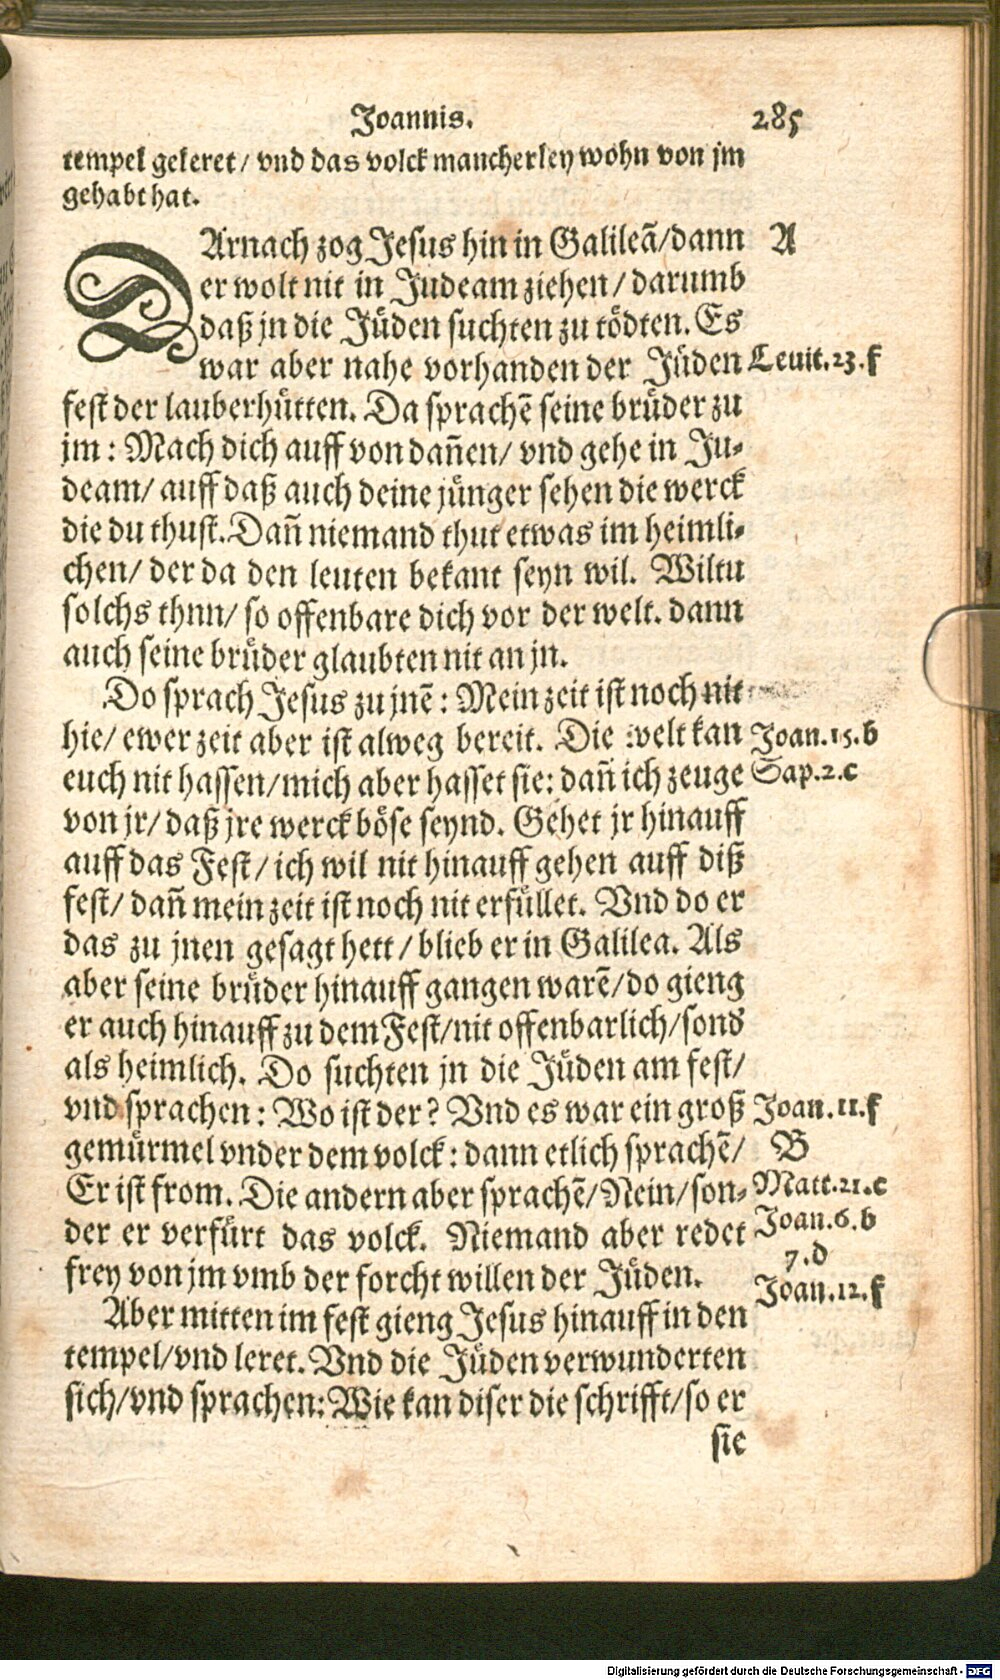 Joannis. 285
tempel gekeret / vnd das volck mancherley wohn von jm
gehabt hat.
DArnach zog Jesus hin in Galileã/dann A
er wolt nit in Judeam ziehen / darumb
daß jn die Jüden suchten zu tödten. Es
war aber nahe vorhanden der Jüden Leuit.23.f
fest der lauberhütten. Da sprachẽ seine brüder zu
jm : Mach dich auff von dañen/ vnd gehe in Ju-
deam/ auff daß auch deine jünger sehen die werck
die du thust. Dañ niemand thut etwas im heimli-
chen/ der da den leuten bekant seyn wil. Wiltu
solchs thnn/ so offenbare dich vor der welt. dann
auch seine brüder glaubten nit an jn.
Do sprach Jesus zu jnẽ : Mein zeit ist noch nit
hie/ ewer zeit aber ist alweg bereit. Die welt kan Joan.15.b
euch nit hassen/mich aber hasset sie: dañ ich zeuge Sap.2.c
von jr/ daß jre werck böse seynd. Gehet jr hinauff
auff das Fest / ich wil nit hinauff gehen auff diß
fest/ dañ mein zeit ist noch nit erfüllet. Vnd do er
das zu jnen gesagt hett / blieb er in Galilea. Als
aber seine brüder hinauff gangen warẽ/do gieng
er auch hinauff zu dem Fest/nit offenbarlich/sond
als heimlich. Do suchten jn die Jüden am fest/
vnd sprachen : Wo ist der? Vnd es war ein groß Joan.11.f
gemürmel vnder dem volck : dann etlich sprachẽ/ B
Er ist from. Die andern aber sprachẽ/Nein/son- Matt.21.c
der er verfürt das volck. Niemand aber redet Joan.6.b
7.d
frey von jm vmb der forcht willen der Jüden. Joan.12.f
Aber mitten im fest gieng Jesus hinauff in den
tempel/vnd leret. Vnd die Jüden verwunderten
sich/vnd sprachen: Wie kan diser die schrifft/so er
sie
Digitalisierung gefördert durch die Deutsche Forschungsgemeinschaft - DFG